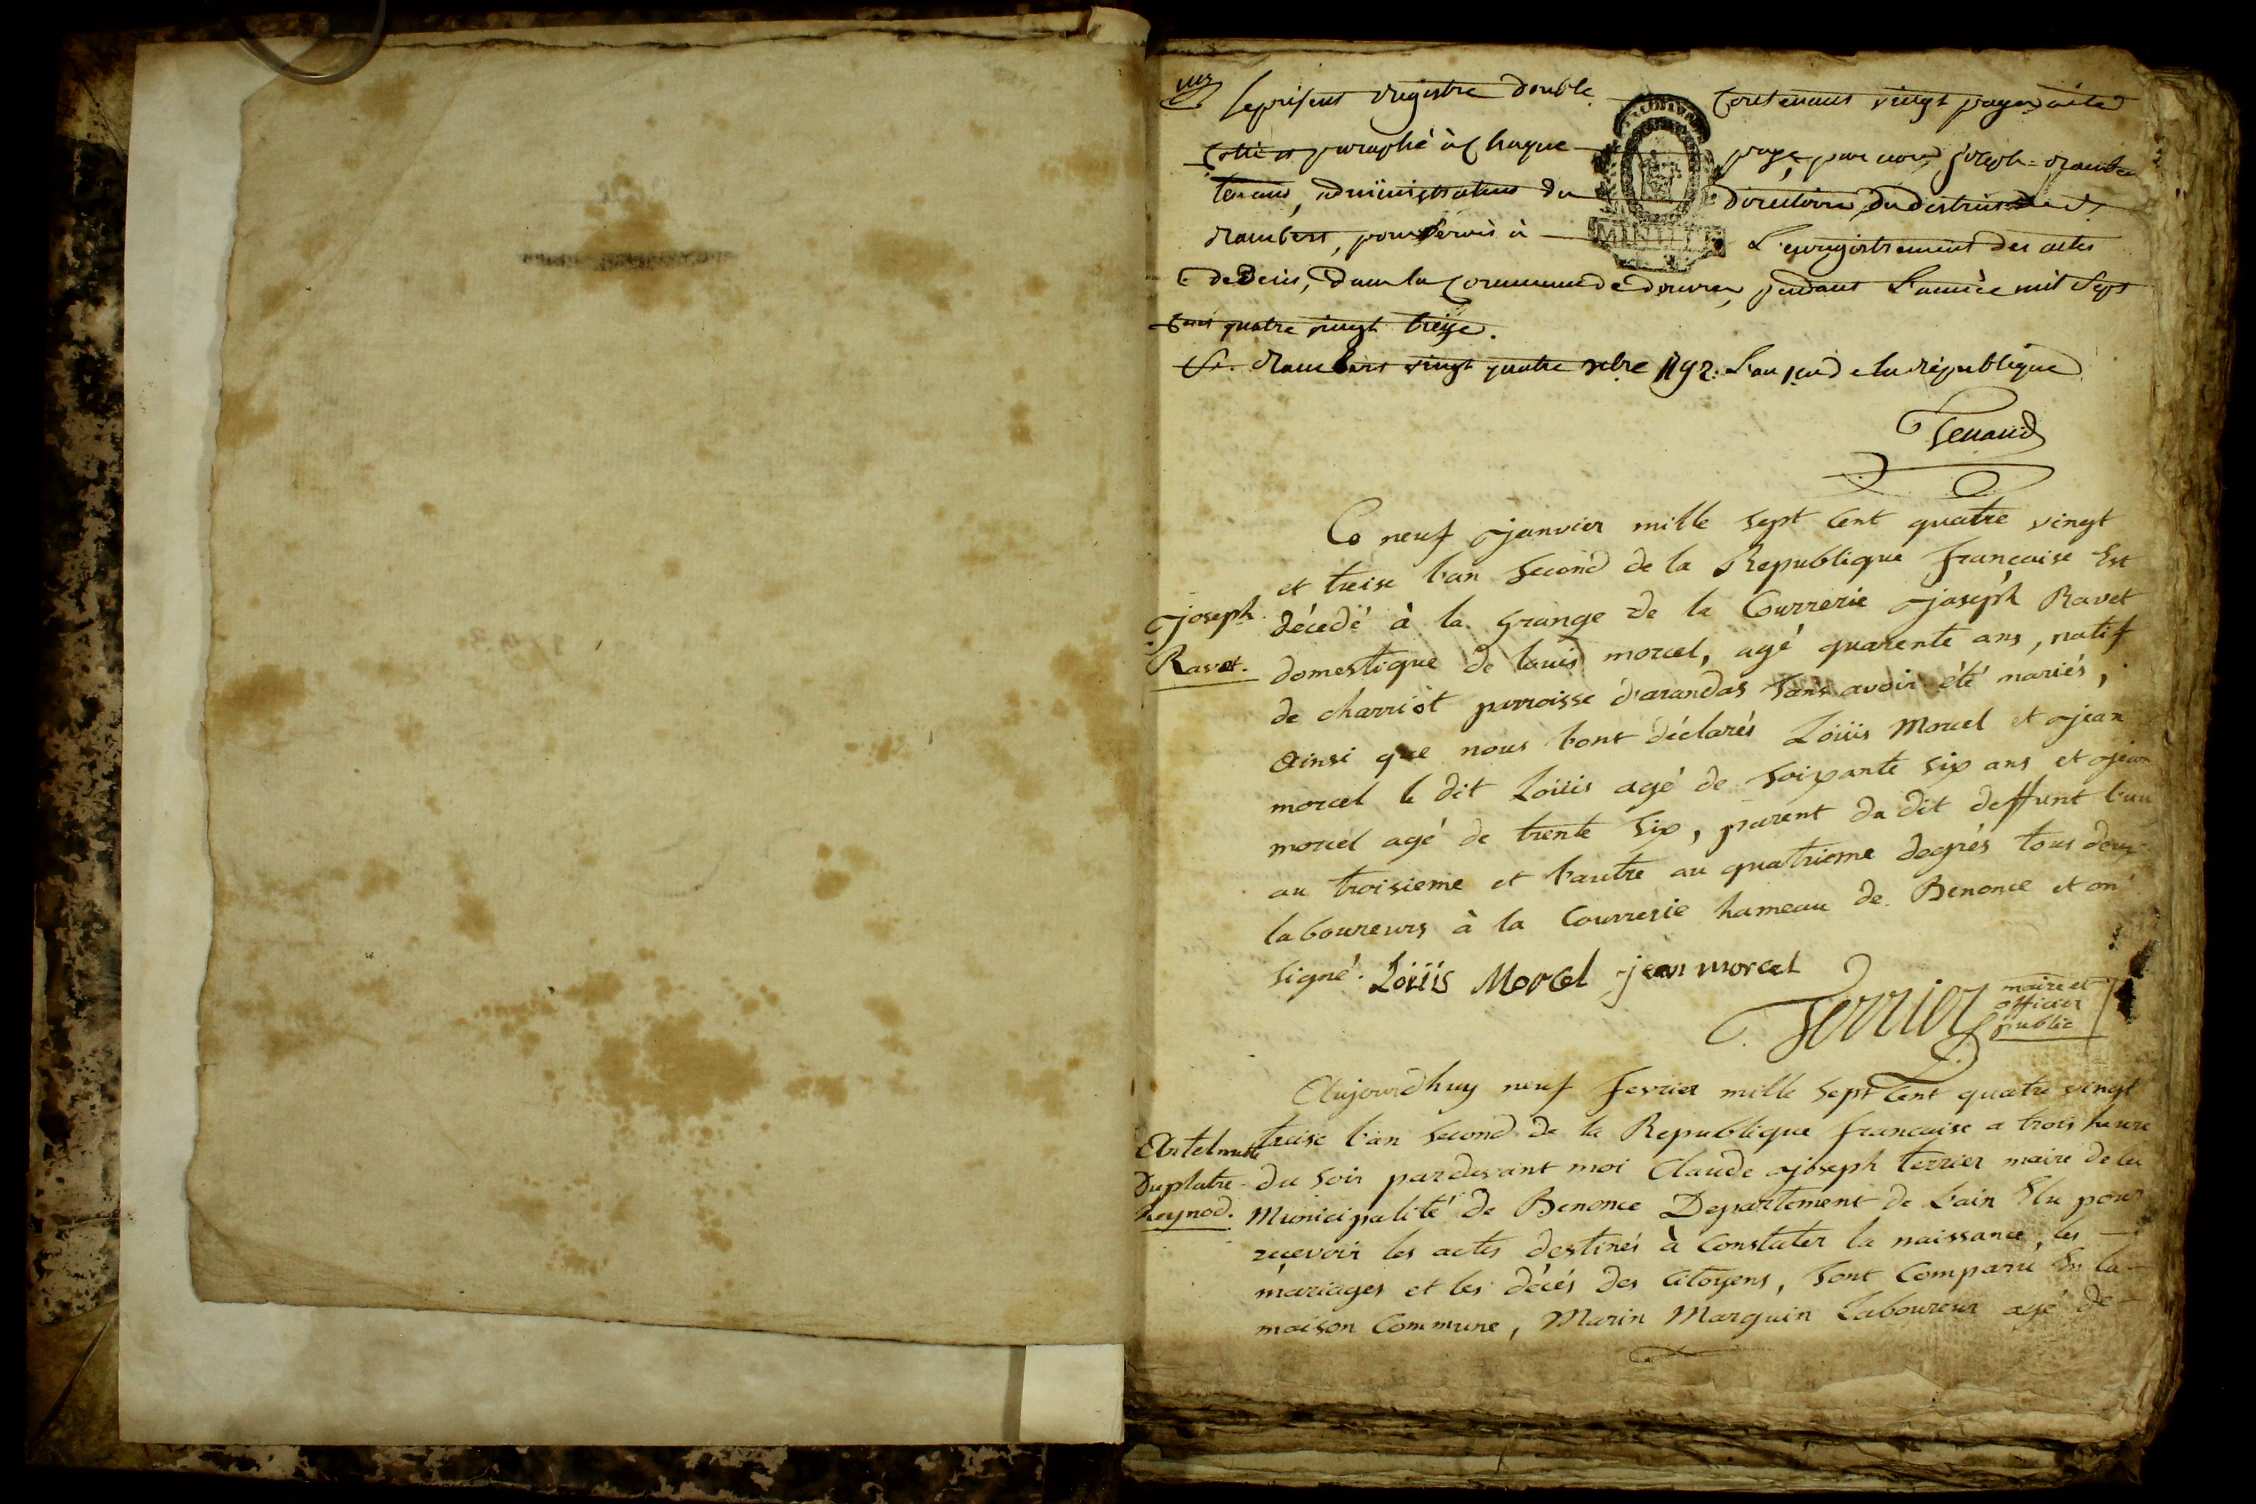 Le présent Registre double contenant vingt pages a été
cotté et paraphé à chaque page par nous, Joseph Rambert
tenand, administrateur du directoire du district de St
Rambert, pour servir à L'enregistrement des actes
de Décès, dans la Commune de pendant L'année mil Sept
Cent quatre vingt treize.
St. Rambert vingt quatre xbre 1792. L'an 1er de la République
Tenand
MINUTE
Ce neuf janvier mille Sept Cent quatre vingt
et treise l'an Second de la Republique française Est
joseph
Ravet.
décedé à la Grange de la Courrerie joseph Ravet
domestique de louis morcel, agé quarente ans, natif
de charriot parroisse d'arandas Sans avoir été mariés,
Ainsi que nous l'ont déclarés Loüis Morcel et jean
morcel le dit Loüis agé de Soixante Six ans et jean
morcel agé de trente Six, parent du dit deffunt l'un
au troisieme et l'autre au quatrieme degrés tous deux
laboureurs à la Courrerie hameau de Benonce et on
Signé. Loüis Morcel jean morcel
Terrier maire et
officier
public
Aujourdhuy neuf Fevrier mille Sept Cent quatre vingt
treise l'an Second de la Republique francaise a trois heure
Antelmette
Duplatre
Reynod.
du Soir pardevant moi Claude joseph terrier maire de la
Municipalité de Benonce Departement de L'ain Elu pour
recevoir les actes destinés à Constater la naissance, les
mariages et les décés des Citoyens, Sont Comparu En la
maison Commune, Marin Marguin Laboureur agé de